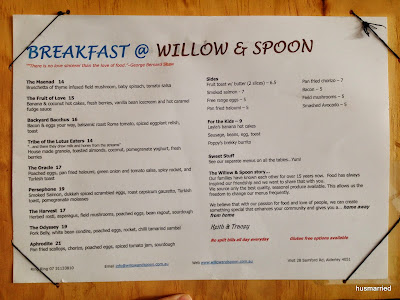 BREAKFAST @ WILLOW & SPOON
"There is no love sincerer than the love of food." -George Bernard Shaw
The Maenad 14
Bruschetta of thyme infused field mushroom, baby spinach, tomato salsa
The Fruit of Love 15
Banana & coconut hot cakes, fresh berries, vanilla bean icecream and hot caramel fudge sauce
Backyard Bacchus 16
Bacon & eggs your way, balsamic roast Roma tomato, spiced eggplant relish, toast
Tribe of the Lotus Eaters 14
House made granola, toasted almonds, coconut, pomegranate yoghurt, fresh berries
The Oracle 17
Poached eggs, pan fried beloumi, green onion and tomato salsa, spicy rocket, and Turkish toast
Persephone 19
Smoked Salmon, dukkah spiced scrambled eggs, roast capsicum gazuntas, Turkish toast, pomegranate molasses
The Harvest 17
Herbed rosti, asparagus, field mushrooms, poached eggs, bean ragout, sourdough
The Odyssey 19
Pork Belly, white bean condres, poached eggs, rocket, chilli tamarind sambal
Aphrodite 21
Pan fried scallops, chorizo, poached eggs, spiced tomato jam, sourdough
Sides
Fruit toast w/ butter (2 slices) – 6.5
Smoked salmon – 7
Free range eggs – 3
Pan fried beloumi – 5
Pan fried chorizo – 7
Bacon – 5
Field mushrooms – 5
Smashed Avocado – 5
For the Kids – 9
Lexie's banana hot cakes
Sausage, beans, egg, toast
Poppy's brekky burrito
Sweet Stuff
See our separate menus on all the tables...Yum!
The Willow & Spoon story...
Our families have known each other for over 15 years now. Food has always inspired our friendship and we want to share that with you.
We source only the best quality, seasonal produce available. This allows us the freedom to change our menus frequently.
We believe that with our passion for food and love of people, we can create something special that enhances your community and gives you a... home away from home
Keith & Treasy
No split bills all day everyday
Gluten free options available
Ring Ring 07 31533910
Email
Web www.willowandspoon.com.au
Visit 28 Samford Rd, Alderley 4051
husmarried